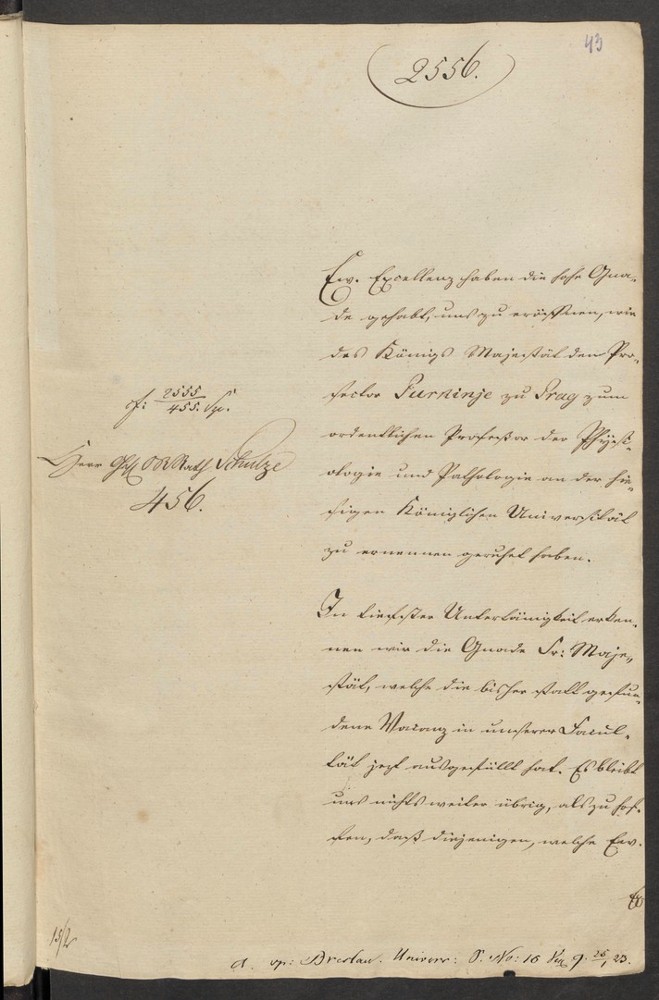 43
2556.
Ew. Excellenz haben die hohe Gna-
de gehabt, uns zu eröffnen, wie
des Königs Majestät den Pro-
sector Purkinje zu Prag zum
ordentlichen Professor der Physi-
ologie und Pathologie an der hie-
sigen Königlichen Universität
zu ernennen geruhet haben.
In tiefster Unterthänigkeit erken-
nen wir die Gnade Sr: Maje-
stät, welche die bisher statt gefun-
dene Vacanz in unserer Facul-
tät jetzt ausgefüllt hat. Es bleibt
uns nichts weiter übrig, als zu hof-
fen, daß diejenigen, welche Ew.
cf: 2555
455.
Herr Schulze
456.
15/2
a. Breslau. Univers: No: 16